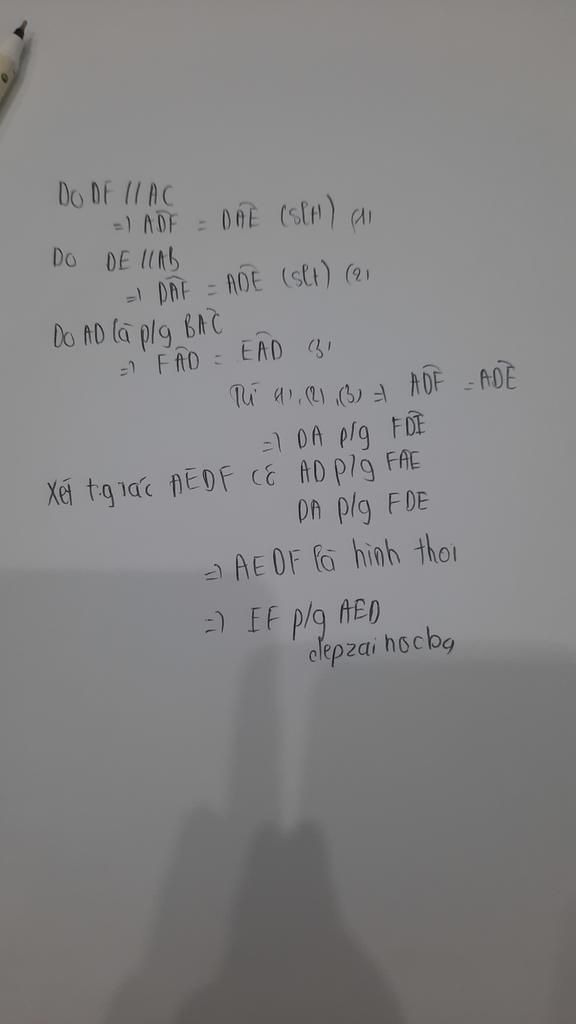 Do DF // AC
=> ADF̂ = DAÊ (slt) (1)
Do DE // AB
=> DAF̂ = ADÊ (slt) (2)
Do AD là p/g BAĈ
=> FAD̂ = EAD̂ (3)
Từ (1), (2), (3) => ADF̂ = ADÊ
=> DA p/g FDÊ
Xét t.giác AEDF có AD p/g FAE
DA p/g FDE
=> AEDF là hình thoi
=> EF p/g AED
depzaihocbg